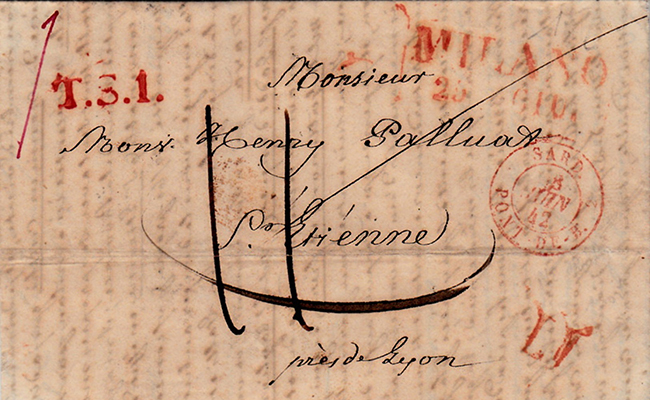 MILANO
T.S.1.
Monsieur
Monsr. Henry Palluat
St. Etiénne
près de Lyon
SARD.
5
JUIN
42
PONT-DE-B.
LT